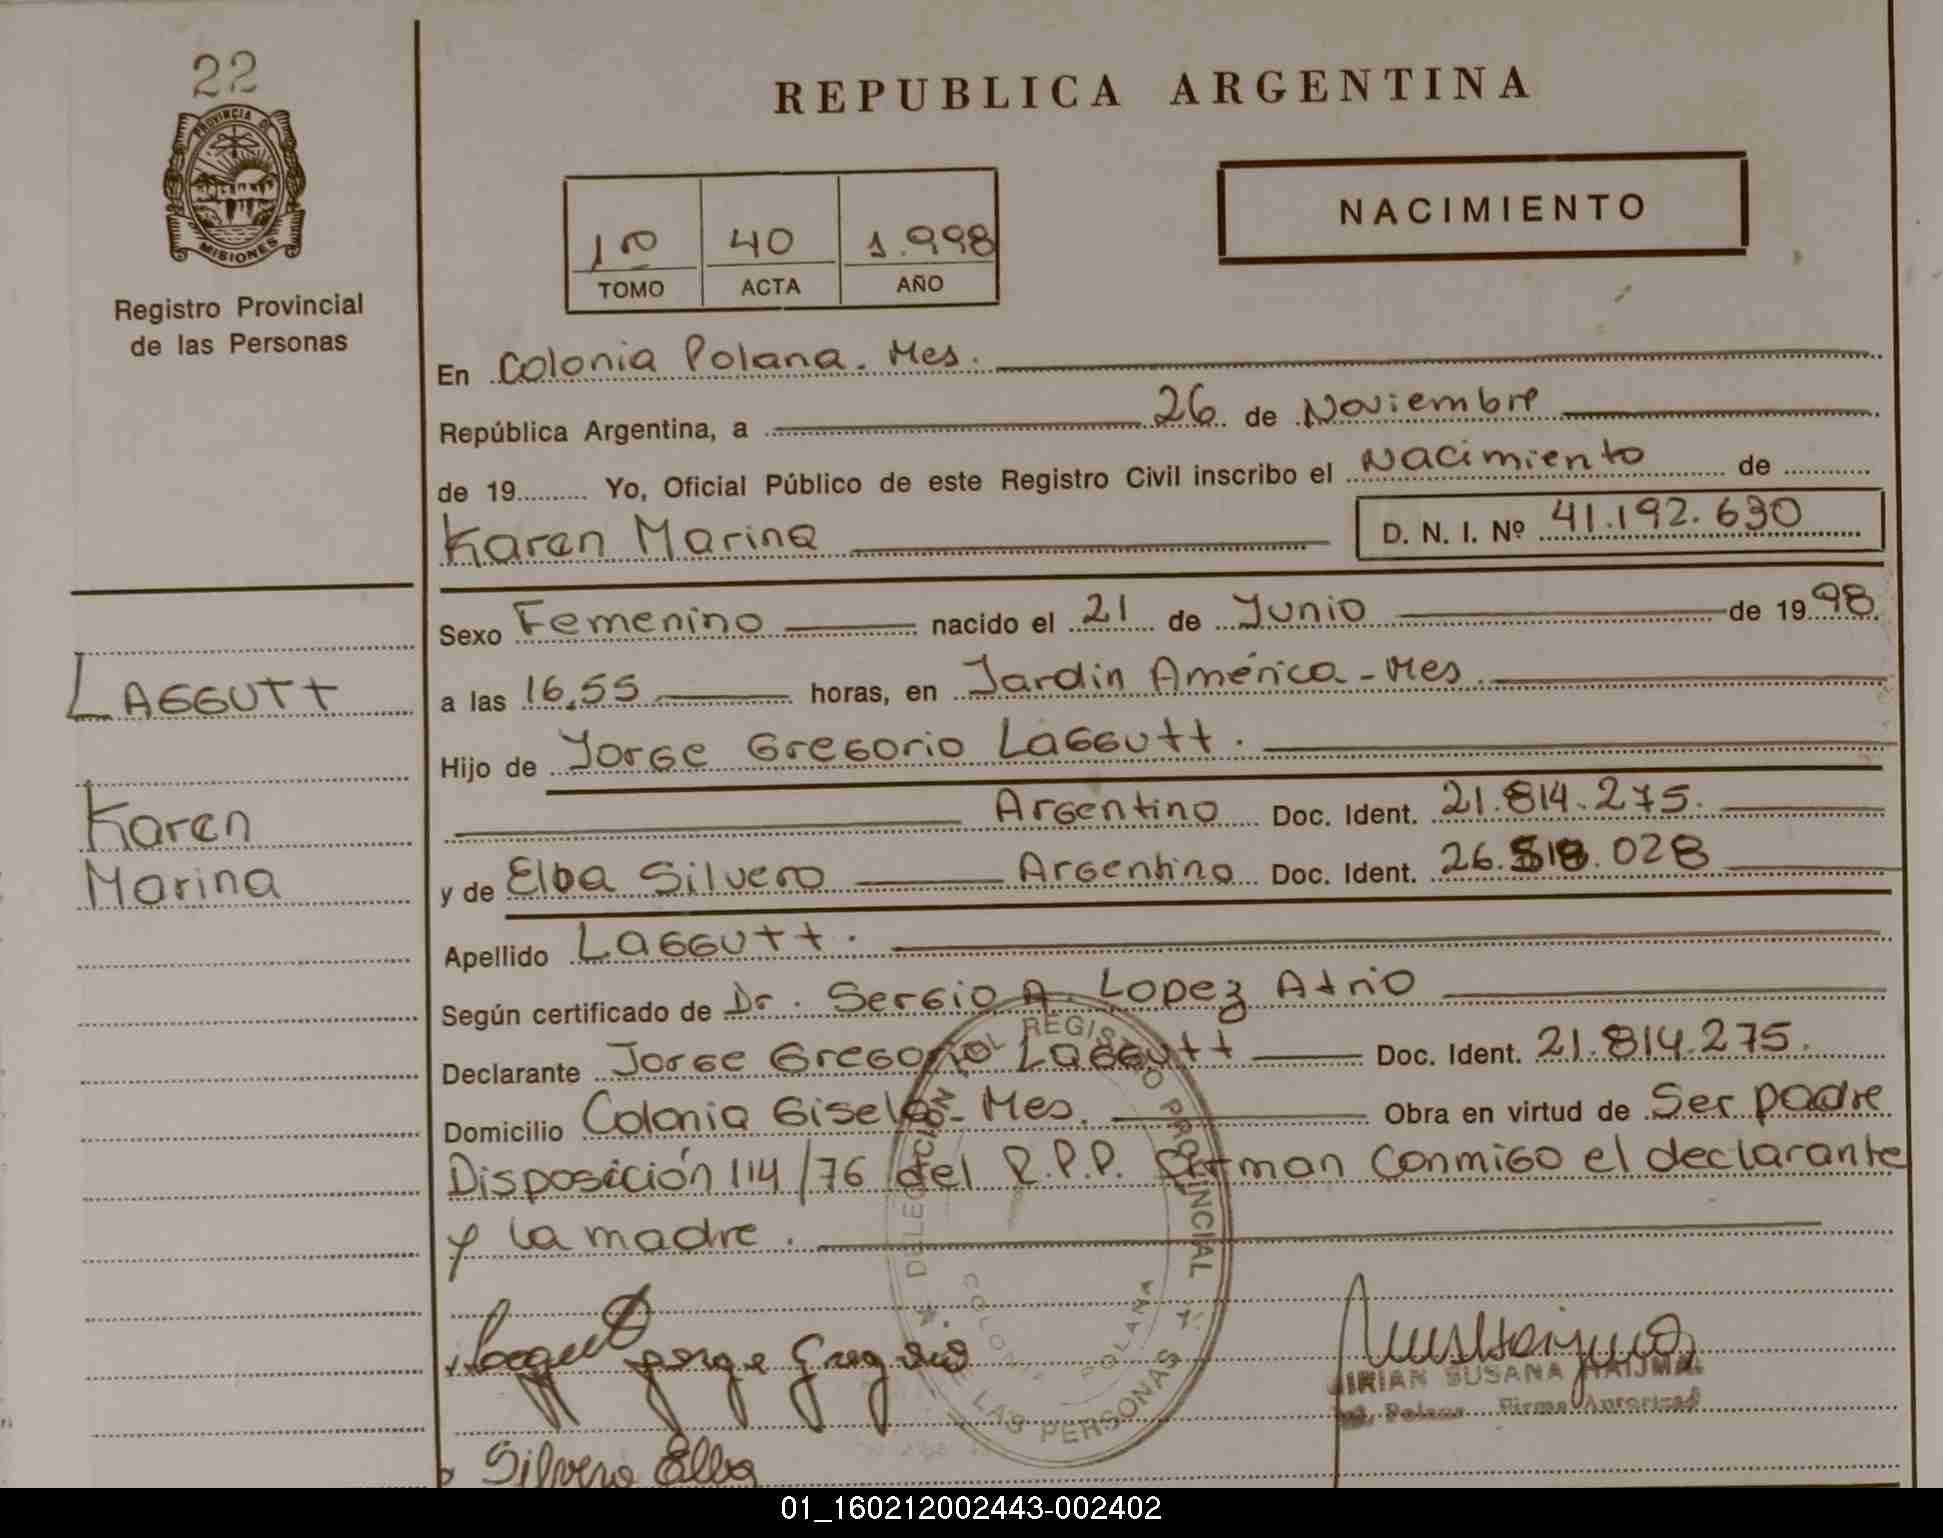 22
PROVINCIA DE
MISIONES
Registro Provincial
de las Personas
REPUBLICA ARGENTINA
NACIMIENTO
1º 40 1.998
TOMO ACTA AÑO
En Colonia Polana. Mes.
República Argentina, a 26 de Noviembre
de 19 Yo, Oficial Público de este Registro Civil inscribo el Nacimiento de
Karen Marina D. N. I. Nº 41.192.630
Sexo Femenino nacido el 21 de Junio de 1998
a las 16,55 horas, en Jardin América - Mes.
Hijo de Jorge Gregorio Laggutt.
Argentino Doc. Ident. 21.814.275.
y de Elba Silvero Argentina Doc. Ident. 26.518.028
Apellido Laggutt.
Según certificado de Dr. Sergio A. Lopez Atrio
Declarante Jorge Gregorio Laggutt Doc. Ident. 21.814.275.
Domicilio Colonia Gisela - Mes. Obra en virtud de Ser padre
Disposición 114/76 del R.P.P. firman conmigo el declarante
y la madre.
Laggutt
Karen
Marina
DELEGACION DEL REGISTRO PROVINCIAL DE LAS PERSONAS
COLONIA POLANA
Laggutt Jorge Gregorio
MIRIAN SUSANA
Firma Autorizad
Silvero Elba
01_160212002443-002402